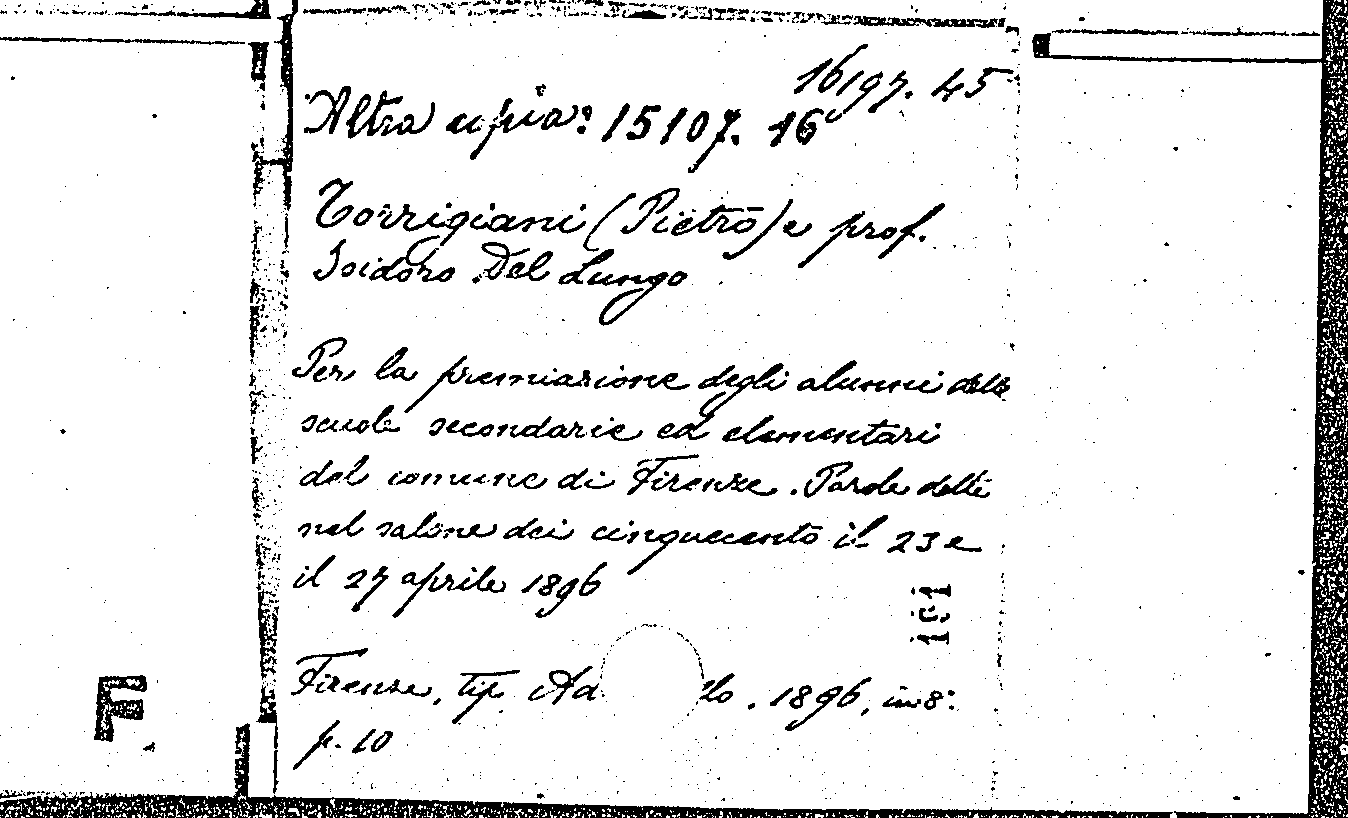 16197. 45
Altra copia: 15107. 16
Torrigiani (Pietro) e prof.
Isidoro Del Lungo
Per la premiazione degli alunni delle
scuole secondarie ed elementari
del comune di Firenze. Parole dette
nel salone dei cinquecento il 23 e
il 27 aprile 1896
101
Firenze, tip. Ad lo, 1896, in 8°.
p. 10
F